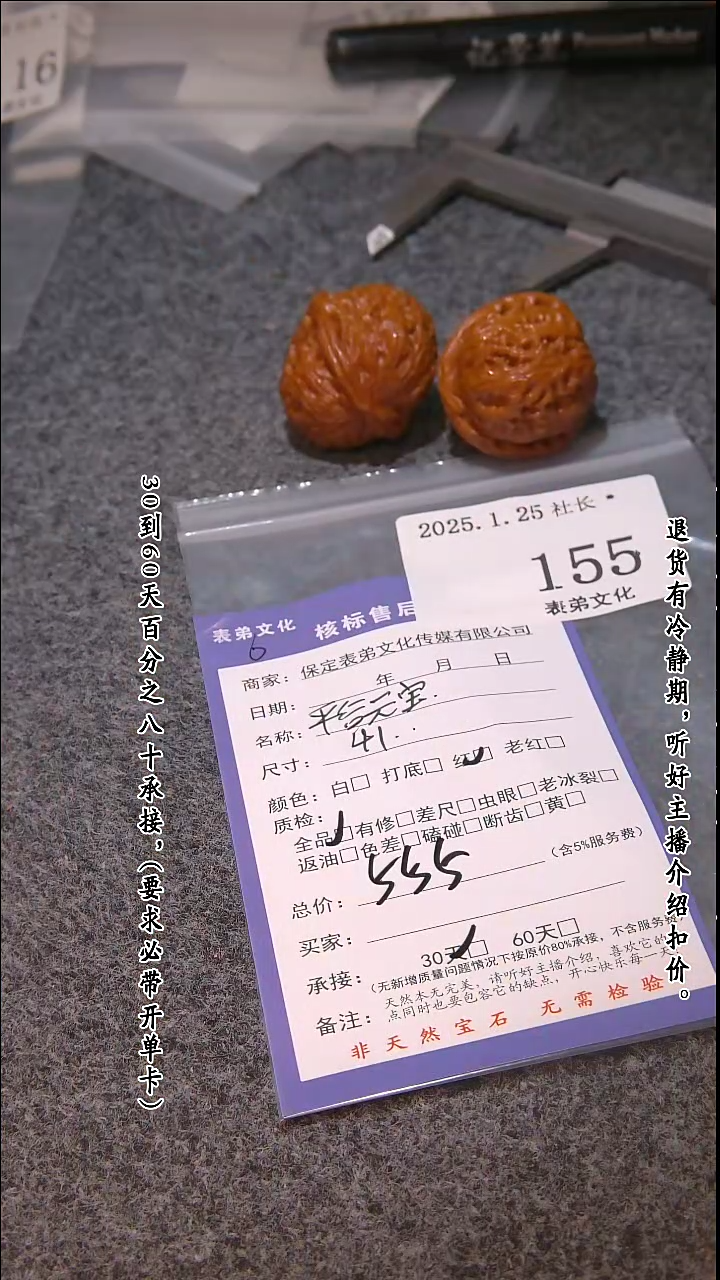 16
2025.1.25 社长
155
表弟文化
表弟文化 核标售后
6
商家：保定表弟文化传媒有限公司
日期： 年 月 日
名称：平谷元宝.
尺寸：41..
颜色：白□ 打底□ 红□ 老红□
质检：
全品□有修□差尺□虫眼□老冰裂□
返油□色差□磕碰□断齿□黄□
总价：555（含5%服务费）
买家：
承接：30天□ 60天□
（无新增质量问题情况下按原价80%承接，不含服务费）
备注：天然本无完美，请听好主播介绍，喜欢它的
点同时也要包容它的缺点，开心快乐每一天
非天然宝石 无需检验
退货有冷静期，听好主播介绍扣价。
30到60天百分之八十承接，（要求必带开单卡）